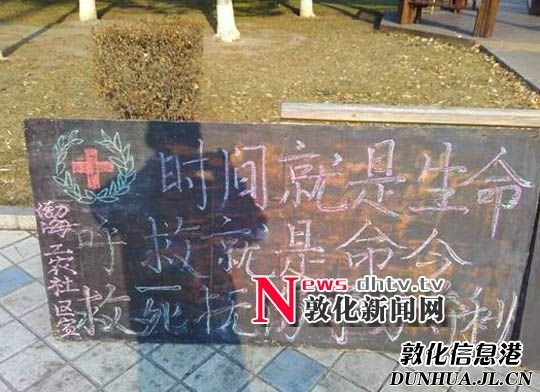 时间就是生命
呼救就是命令
救死扶
渤海工农社区宣
News.dhtv.tv
敦化新闻网
敦化信息港
DUNHUA.JL.CN